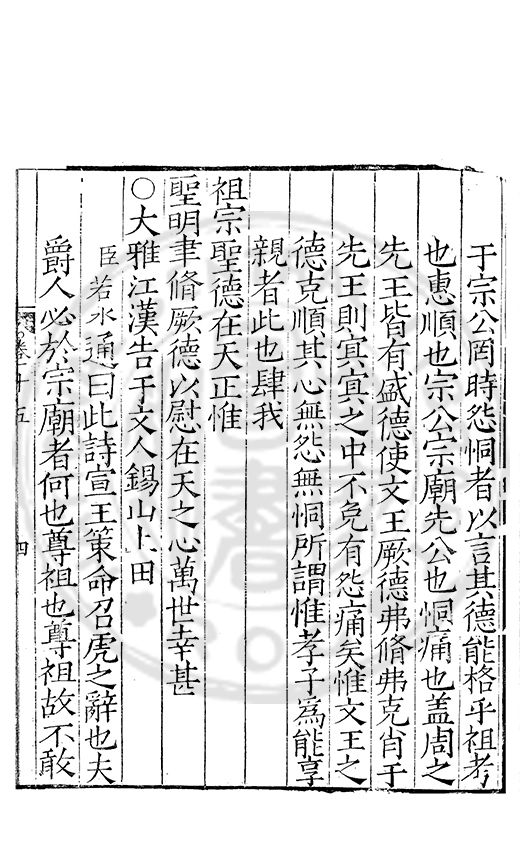 于宗公罔時怨恫者以言其德能格乎祖考
也惠順也宗公宗廟先公也恫痛也蓋周之
先王皆有盛德使文王厥德弗脩弗克肖于
先王則冥冥之中不免有怨痛矣惟文王之
德克順其心無怨無恫所謂惟孝子爲能享
親者此也肆我
祖宗聖德在天正惟
聖明聿脩厥德以慰在天之心萬世幸甚
○大雅江漢告于文人錫山土田
臣若水通曰此詩宣王策命召虎之辭也夫
爵人必於宗廟者何也尊祖也尊祖故不敢
卷十五
四